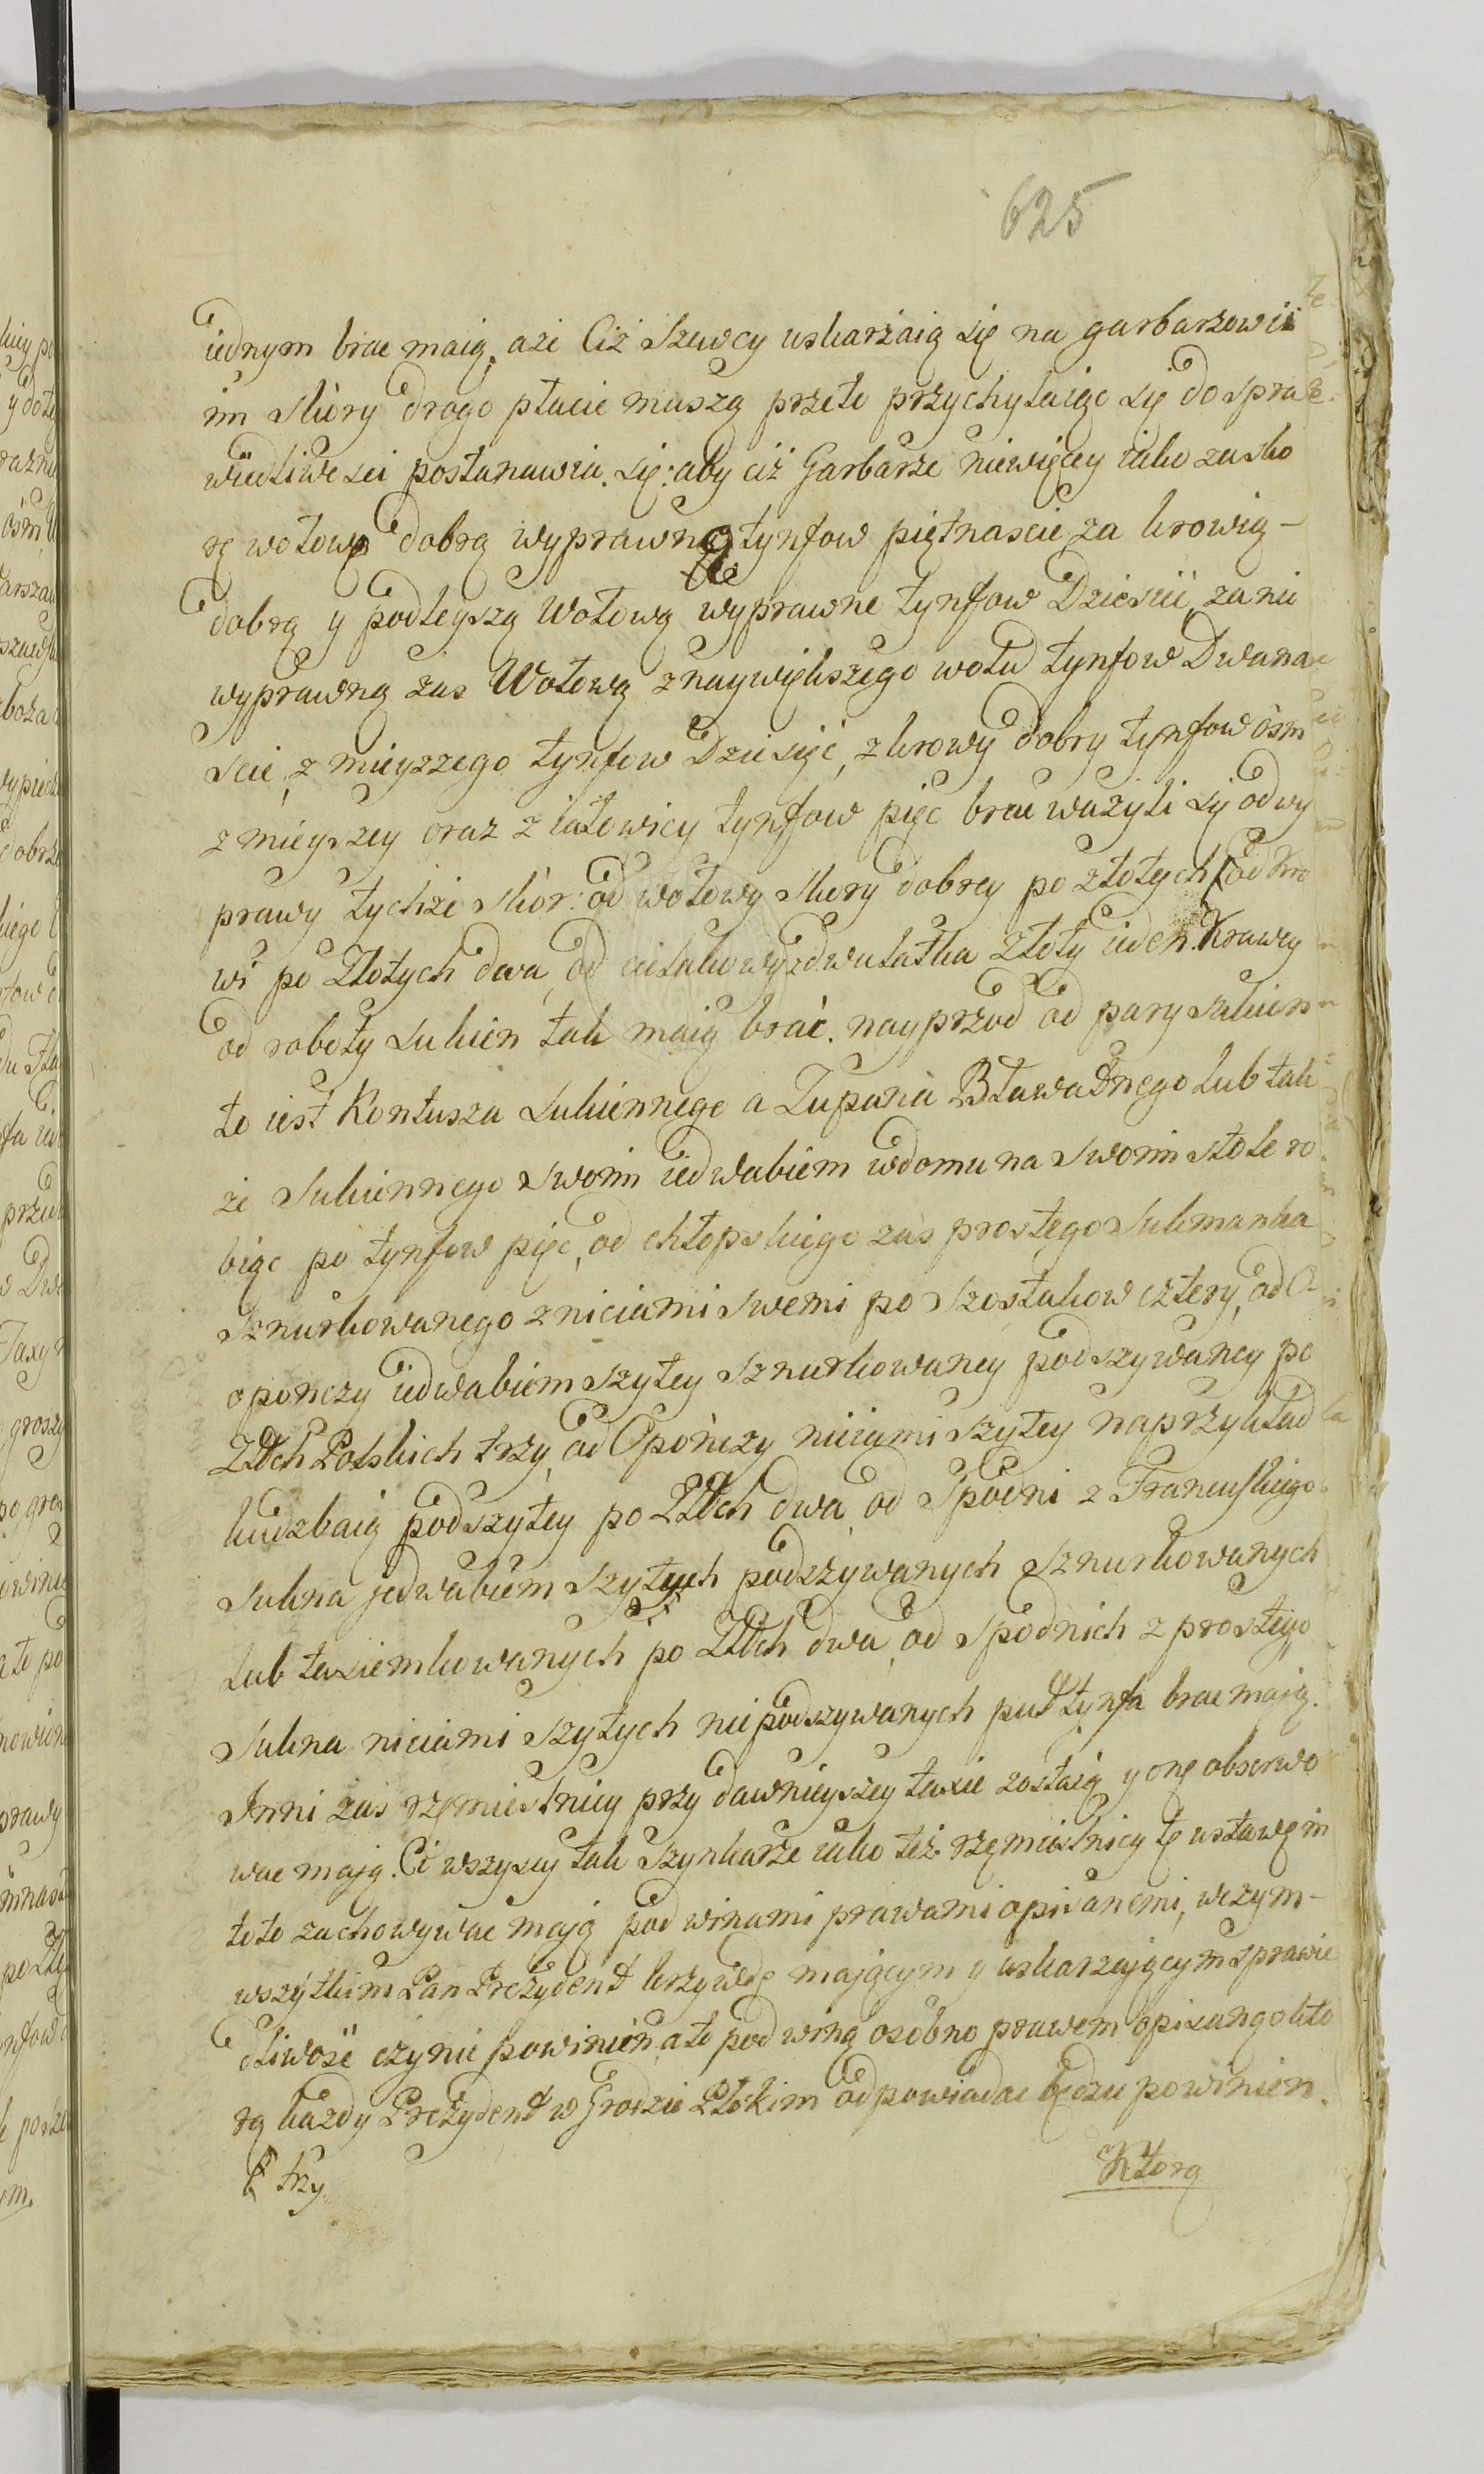 625
iednym brac maią, aże Ciż Szewcy uskarżaią się na garbarzow iż
im skory drogo płacic muszą przeto przychylaiąc się do spra
wiedliwosci postanawia się: aby ciż Garbarze niewięcey iako za sko
rę wołową dobrą wyprawną tynfow piętnascie, za krowią -
dobrą y podleyszą Wołową wyprawne tynfow Dziesiic, za nie
wyprawną zas Wołową z naywiększego wołu tynfow Dwana
scie, z mieyszego tynfow Dziesięć, z krowy dobry tynfow ośm
z mieyszey oraz z iałowicy tynfow pięc brac ważyli się od wy
prawy tychże skór: od wołowy skory dobrey po złotych ₤ od kro
wi po Złotych dwa, od cielakowy z dwulatka złoty ieden. Krawcy
od roboty sukien tak maią brać. nayprzod od pary sukien
to iest Kontusza sukiennego a Zupana Bławatnego lub tak
że Sukiennego swoim iedwabiem w domu na swoim stole ro
biąc po tynfow pięc, od chłopskiego zas prostego Sukmanka
sznurkowanego z niciami swemi po szostakow cztery, od O-
oponczy iedwabiem szytey sznurkowaney podszywaney po
Złłch Polskich trzy, od Opończy niciami szytey naprzykład
kudzbaią podszytey po Złłch dwa, od Spodni z Francuskiego
sukna jedwabiem szytych podszywanych sznurkowanych
lub tasiemkowanych po Złłch dwa, od spodnich z prostego
Sukna niciami szytych nie podszywanych puł tynfa brac mają.
Inni zas rzęmieślnicy przy dawnieyszey taxie zostaią y onę obserwo
wac mają. Ci wszyscy tak szynkarze iako też rzęmieslnicy tę ustawę in
toto zachowywac mają pod winami prawami opisanemi, w czym -
wszystkim Pan Prezydent krzywdę mającym y uskarzającym sprawie
dliwość czynic powinien, a to pod winą osobno prawem opisaną o kto
rą każdy Prezydent w Grodzie Płockim odpowiadac będzie powinien.
₤ trzy
Ktorą